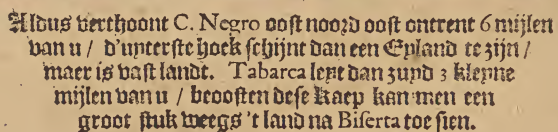 Aldus verthoont C. Negro oost noord oost ontrent 6 mijlen
van u / d'uyterste hoek schijnt dan een Eyland te zijn /
maer is vast landt. Tabarca leyt dan zuyd 3 kleyne
mijlen van u / beoosten dese Kaep kan men een
groot stuk weegs 't land na Biserta toe sien.